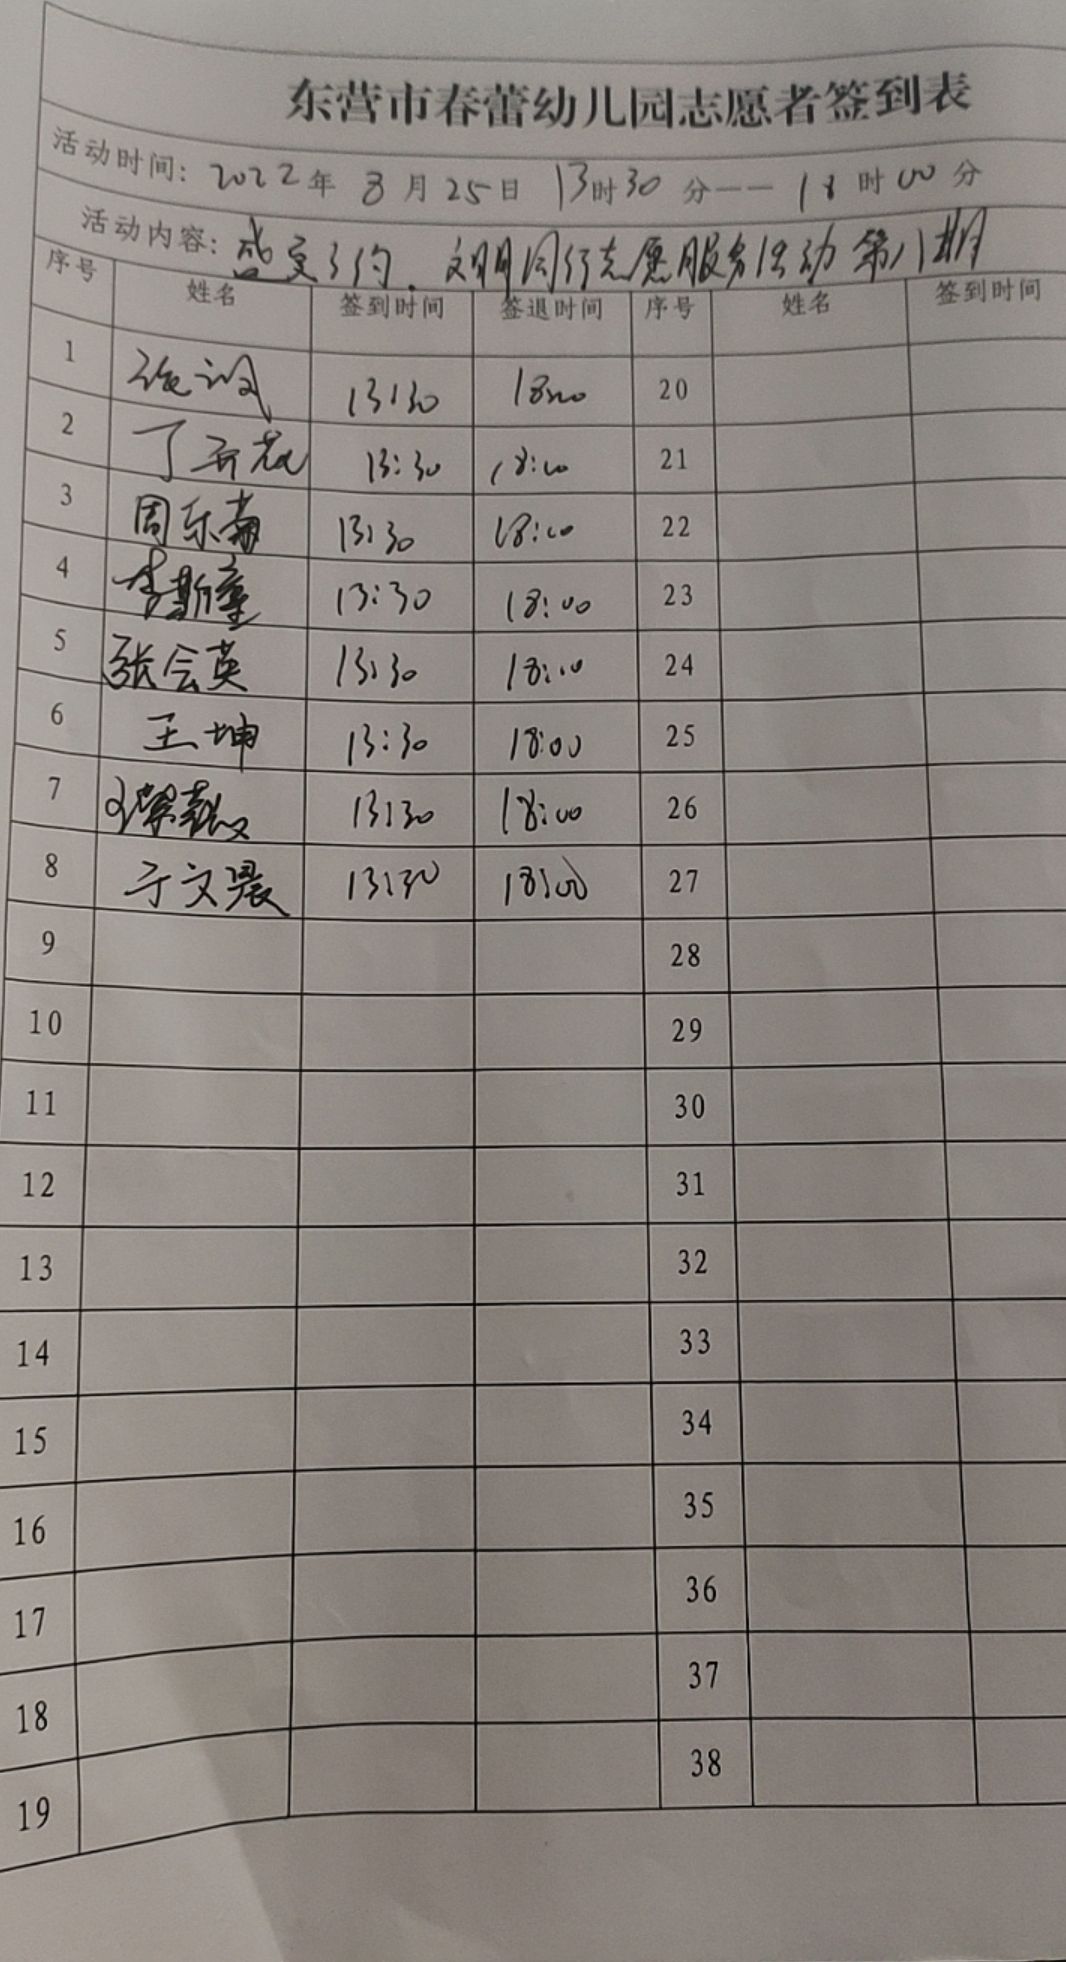 东营市春蕾幼儿园志愿者签到表
活动时间: 2022年 8月25日 13时30分—— 18时00分
活动内容: 盛夏 约. 文明同行志愿服务活动第八期
序号 姓名 签到时间 签退时间 序号 姓名 签到时间
1 13:30 18:00 20
2 丁 13:30 18:00 21
3 周乐 13:30 18:00 22
4 李斯童 13:30 18:00 23
5 张会英 13:30 18:00 24
6 王坤 13:30 18:00 25
7 13:30 18:00 26
8 于文晨 13:30 18:00 27
9 28
10 29
11 30
12 31
13 32
14 33
15 34
16 35
17 36
18 37
19 38